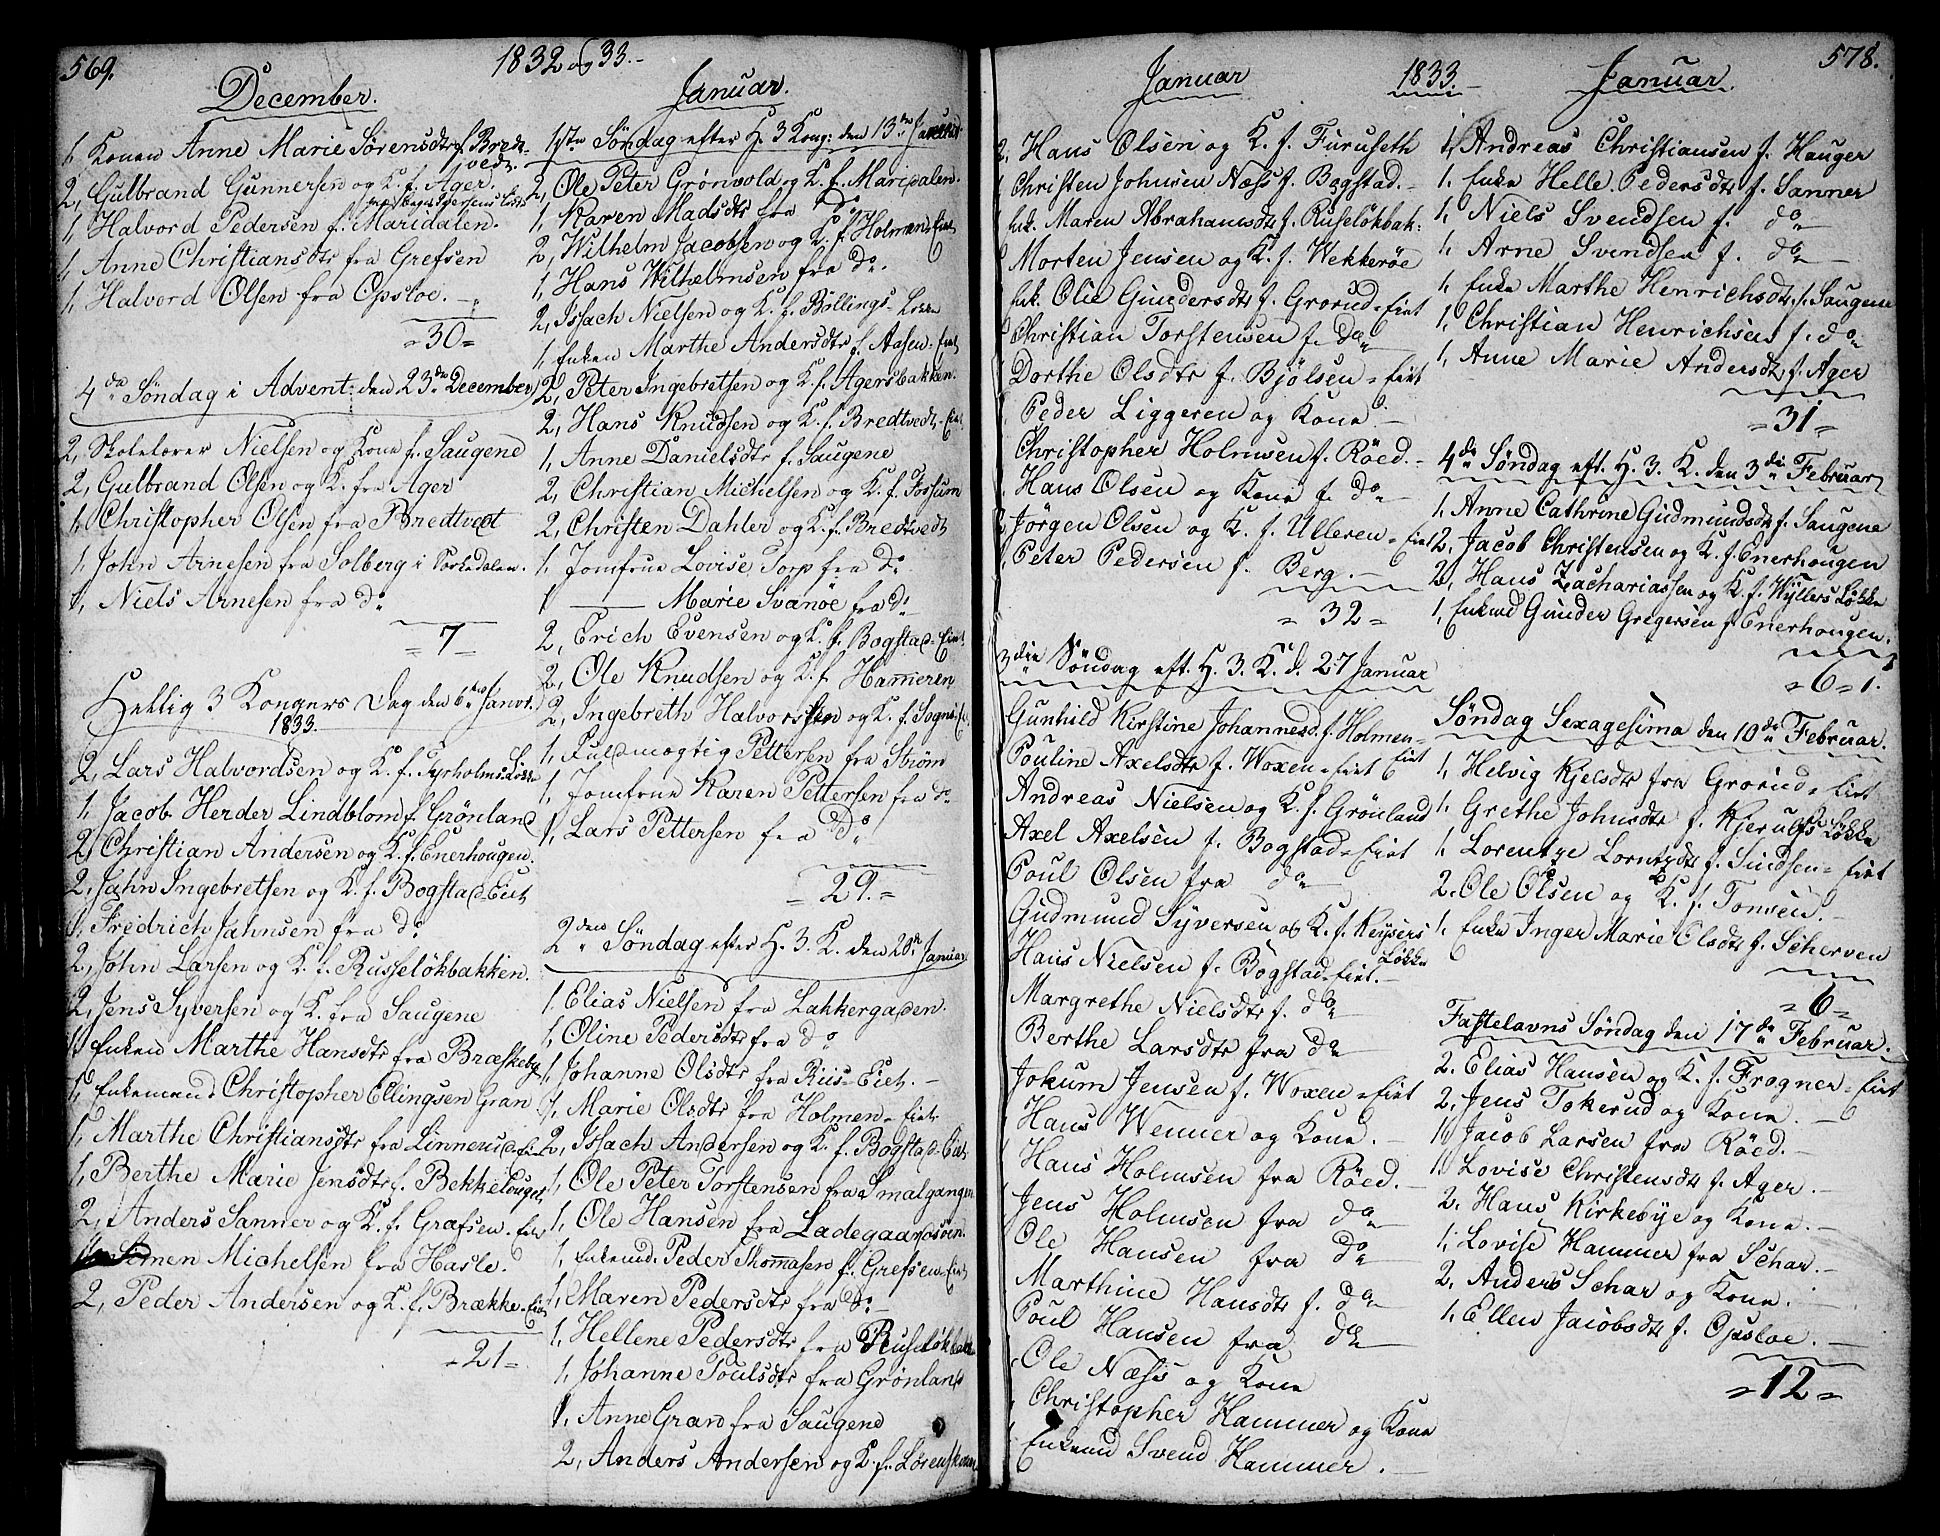 569.
1832 og 33.
December.
1, Konen Anne Marie Sørensdtr f. Bred-
vedt.
2, Gulbrand Gunnersen og K. f. Ager.
1, Halvord Pedersen f. Maridalen.
1, Anne Christiansdtr fra Grefsen
1, Halvord Olsen fra Opsloe.
30
4de Søndag i Advent den 23de December
2, Skolelærer Nielsen og Kone f. Saugene
2, Gulbrand Olsen og K. fra Ager
1, Christopher Olsen fra Bredtvedt
1, John Arnesen fra Solberg i Sørkedalen.
1, Niels Arnesen fra do
7
Hellig 3 Kongers Dag den 6te Janvr.
1833.
2, Lars Halvordsen og K. f. Lykke
1, Jacob Herder Lindblom f. Grönland
2, Christian Andersen og K. f. Enerhougen.
2, Jahn Ingebretsen og K. f. Bogstad-Eiet
1, Fredrich Jahnsen fra do
2, John Larsen og K. f. Russeløkbakken.
2, Jens Syversen og K. fra Saugene
1, Enken Marthe Hansdtr fra Bræskeby
1, Enkemand Christopher Ellingsen Gran
1, Marthe Christiansdtr fra Linnerud-Eie
1, Berthe Marie Jensdtr f. Bekkelouget
2, Anders Sanner og K. f. Græfsen-Eie
Simen Michelsen fra Hasle.
2, Peder Andersen og K. f. Brække-Eie
21
Januar.
1ste Søndag efter H. 3 Kong: den 13de Januar
2, Ole Peter Grønvold og K. f. Maridalen.
1, Karen Madsdtr fra do
2, Wilhelm Jacobsen og K. f. Holmen-Eiet
1, Hans Wilhelmsen fra do.
2, Issach Nielsen og K. f. Böllings-Løkke
1, Enken Marthe Andersdtr f. Aasen-Eiet
2, Peter Ingebretsen og K. f. Agersbakken.
2, Hans Knudsen og K. f. Bredtvedt-Eiet
1, Anne Danielsdtr f. Saugene
2, Christian Michelsen og K. f. Fossum
2, Christen Dahler og K. f. Bredtvedt
1, Jomfrue Lovise Torp fra do
1 — Marie Svanöe fra do
2, Erich Evensen og K. f. Bogstad-Eiet
2, Ole Knudsen og K. f. Hammeren
2, Ingebreth Halvorssen og K. f. Sogns-Ei.
1, Fuldmægtig Pettersen fra Ström
1, Jomfrue Karen Pettersen fra do
1, Lars Pettersen fra do
29.
2den Søndag efter H. 3. K. den 20de Januar
1. Elias Nielsen fra Lakkergaden.
1, Oline Pedersdtr fra do
1, Johanne Olsdtr fra Riis-Eiet.
1, Marie Olsdtr fra Holmen-Eiet
2, Issach Andersen og K. f. Bogstad-Eiet
1, Ole Peter Torstensen fra Smalgangen
1, Ole Hansen fra Ladegaardsöen.
1, Enkemd. Peder Thommasen f. Grefsen-Eiet
1, Maren Pedersdtr fra do
1, Hellene Pedersdtr fra Ruseløkbakk
1, Johanne Poulsdtr fra Grönland
1, Anne Gran fra Saugene
2, Anders Andersen og K. f. Lørenskoven
Januar
1833.
578.
2, Hans Olsen og K. f. Furuseth
Christen Johnsen Næss f. Bogstad.
Enk. Maren Abrahamsdtr f. Ruseløkbak:
Morten Jensen og K. f. Wekkerøe
Enk. Olie Gundersdtr f. Grorud-Eiet
Christian Torstensen f. do
Dorthe Olsdtr f. Bjölsen-Eiet
Peder Liggeren og Kone.
Christopher Holmsen f. Röed.
Hans Olsen og Kone f. do
Jörgen Olsen og K. f. Ulleren-Eiet
Peter Pedersen f. Berg.
32
3die Søndag eft. H. 3. K. d. 27 Januar
Gunhild Kirstine Johannesd. f. Holmen-
Eiet
Pouline Axelsdtr f. Woxen-Eiet
Andreas Nielsen og K. f. Grönland
Axel Axelsen f. Bogstad-Eiet
Poul Olsen fra do
Gudmund Syversen og K. f. Keysers
Løkke
Hans Nielsen f. Bogstad-Eiet.
Margrethe Nielsdtr f. do
Berthe Larsdtr fra do
Jokum Jensen f. Woxen-Eiet
Hans Wenner og Kone.
Hans Holmsen fra Röed.
Jens Holmsen fra do
Ole Hansen fra do
Marthine Hansdtr f. do
Poul Hansen fra do
Ole Næss og Kone
Christopher Hammer og Kone
Enkemd Svend Hammer.
Januar.
1, Andreas Christiansen f. Hauger
1. Enke Helle Pedersdtr f. Sanner
1, Niels Svendsen f. do
1, Arne Svendsen f. do
1, Enke Marthe Henrichsdtr f. Saugene
1, Christian Henrichsen f. do
1, Anne Marie Andersdtr f. Ager
31
4de Søndag eft. H. 3. K. den 3die Februar
1. Anne Cathrine Gudmundsdtr f. Saugene
2, Jacob Christensen og K. f. Enerhougen
2, Hans Zachariassen og K. f. Wyllers Løkke
1, Enkemd Gunder Gregersen f. Enerhougen.
6
Søndag Sexagesima den 10de Februar.
1, Helvig Kjelsdtr fra Grorud-Eiet
1. Grethe Johnsdtr f. Kjerulfs Løkke
1. Lorentze Lorntzdtr f. Sindsen-Eiet
2. Ole Olsen og K. f. Tonsen.
1. Enke Inger Marie Elsdtr f. Scherven
6
Fastelavns Søndag den 17de Februar.
2. Elias Hansen og K. f. Frogner-Eiet
2, Jens Tokerud og Kone.
1, Jacob Larsen fra Röed.
1. Lovise Christensdtr f. Ager.
2. Hans Kirkebye og Kone.
1, Lovise Hammer fra Schar.
2, Anders Schar og Kone.
1, Ellen Jacobsdtr f. Opsloe.
12